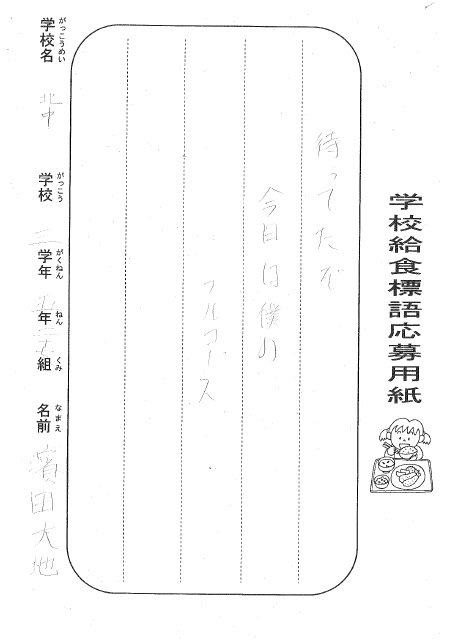 学校給食標語応募用紙
待ってたぞ
今日は僕の
フルコース
がっこうめい
学校名 北中
がっこう
学校 三
がくねん
学年
ねん
年
くみ
組
なまえ
名前 濱田大地